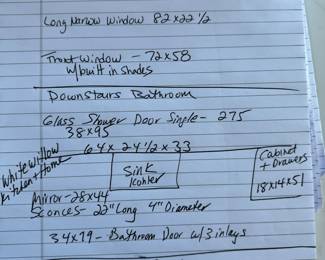 Long Narrow Window 82x22 1/2
Front Window - 72x58
w/built in shades
Downstairs Bathroom
Glass Shower Door Single - 275
38x95
64x24 1/2x33
White Willow
Kitchen + Home
Sink
Kohler
Cabinet
+ Drawers
18x14x51
Mirror - 28x44
Sconces - 22" Long 4" Diameter
34x79 - Bathroom Door w/3 inlays